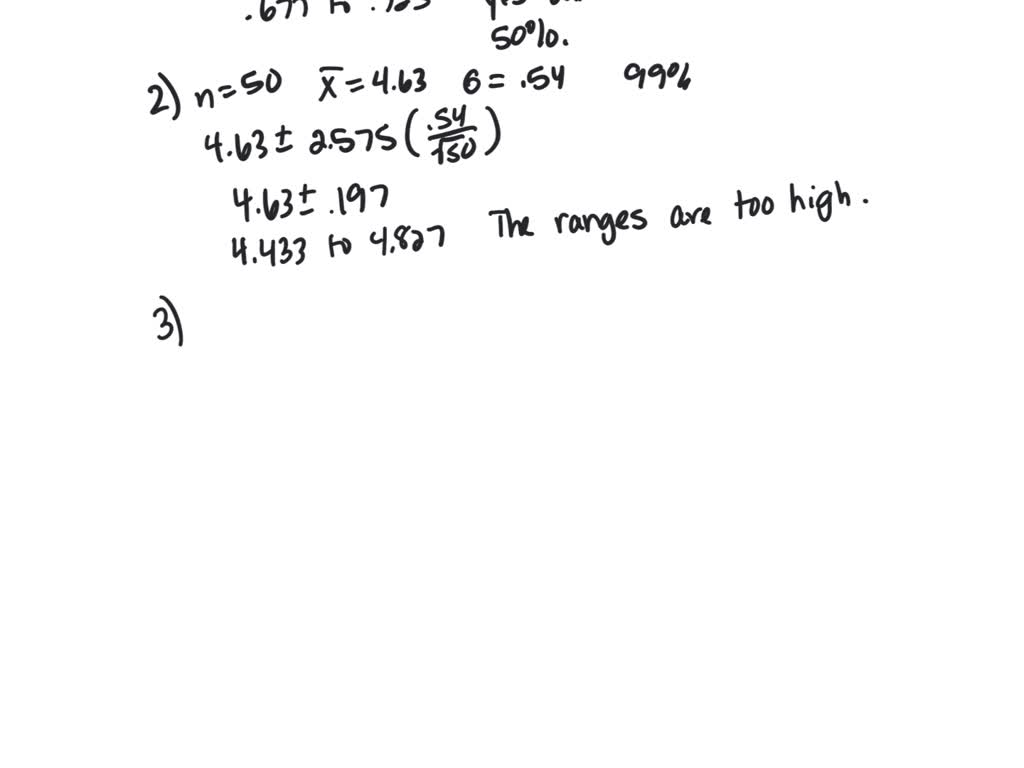 50%.
2) n=50 x̄=4.63 σ=.54 99%
4.63± 2.575(.54/√50)
4.63± .197
4.433 to 4.827 The ranges are too high.
3)